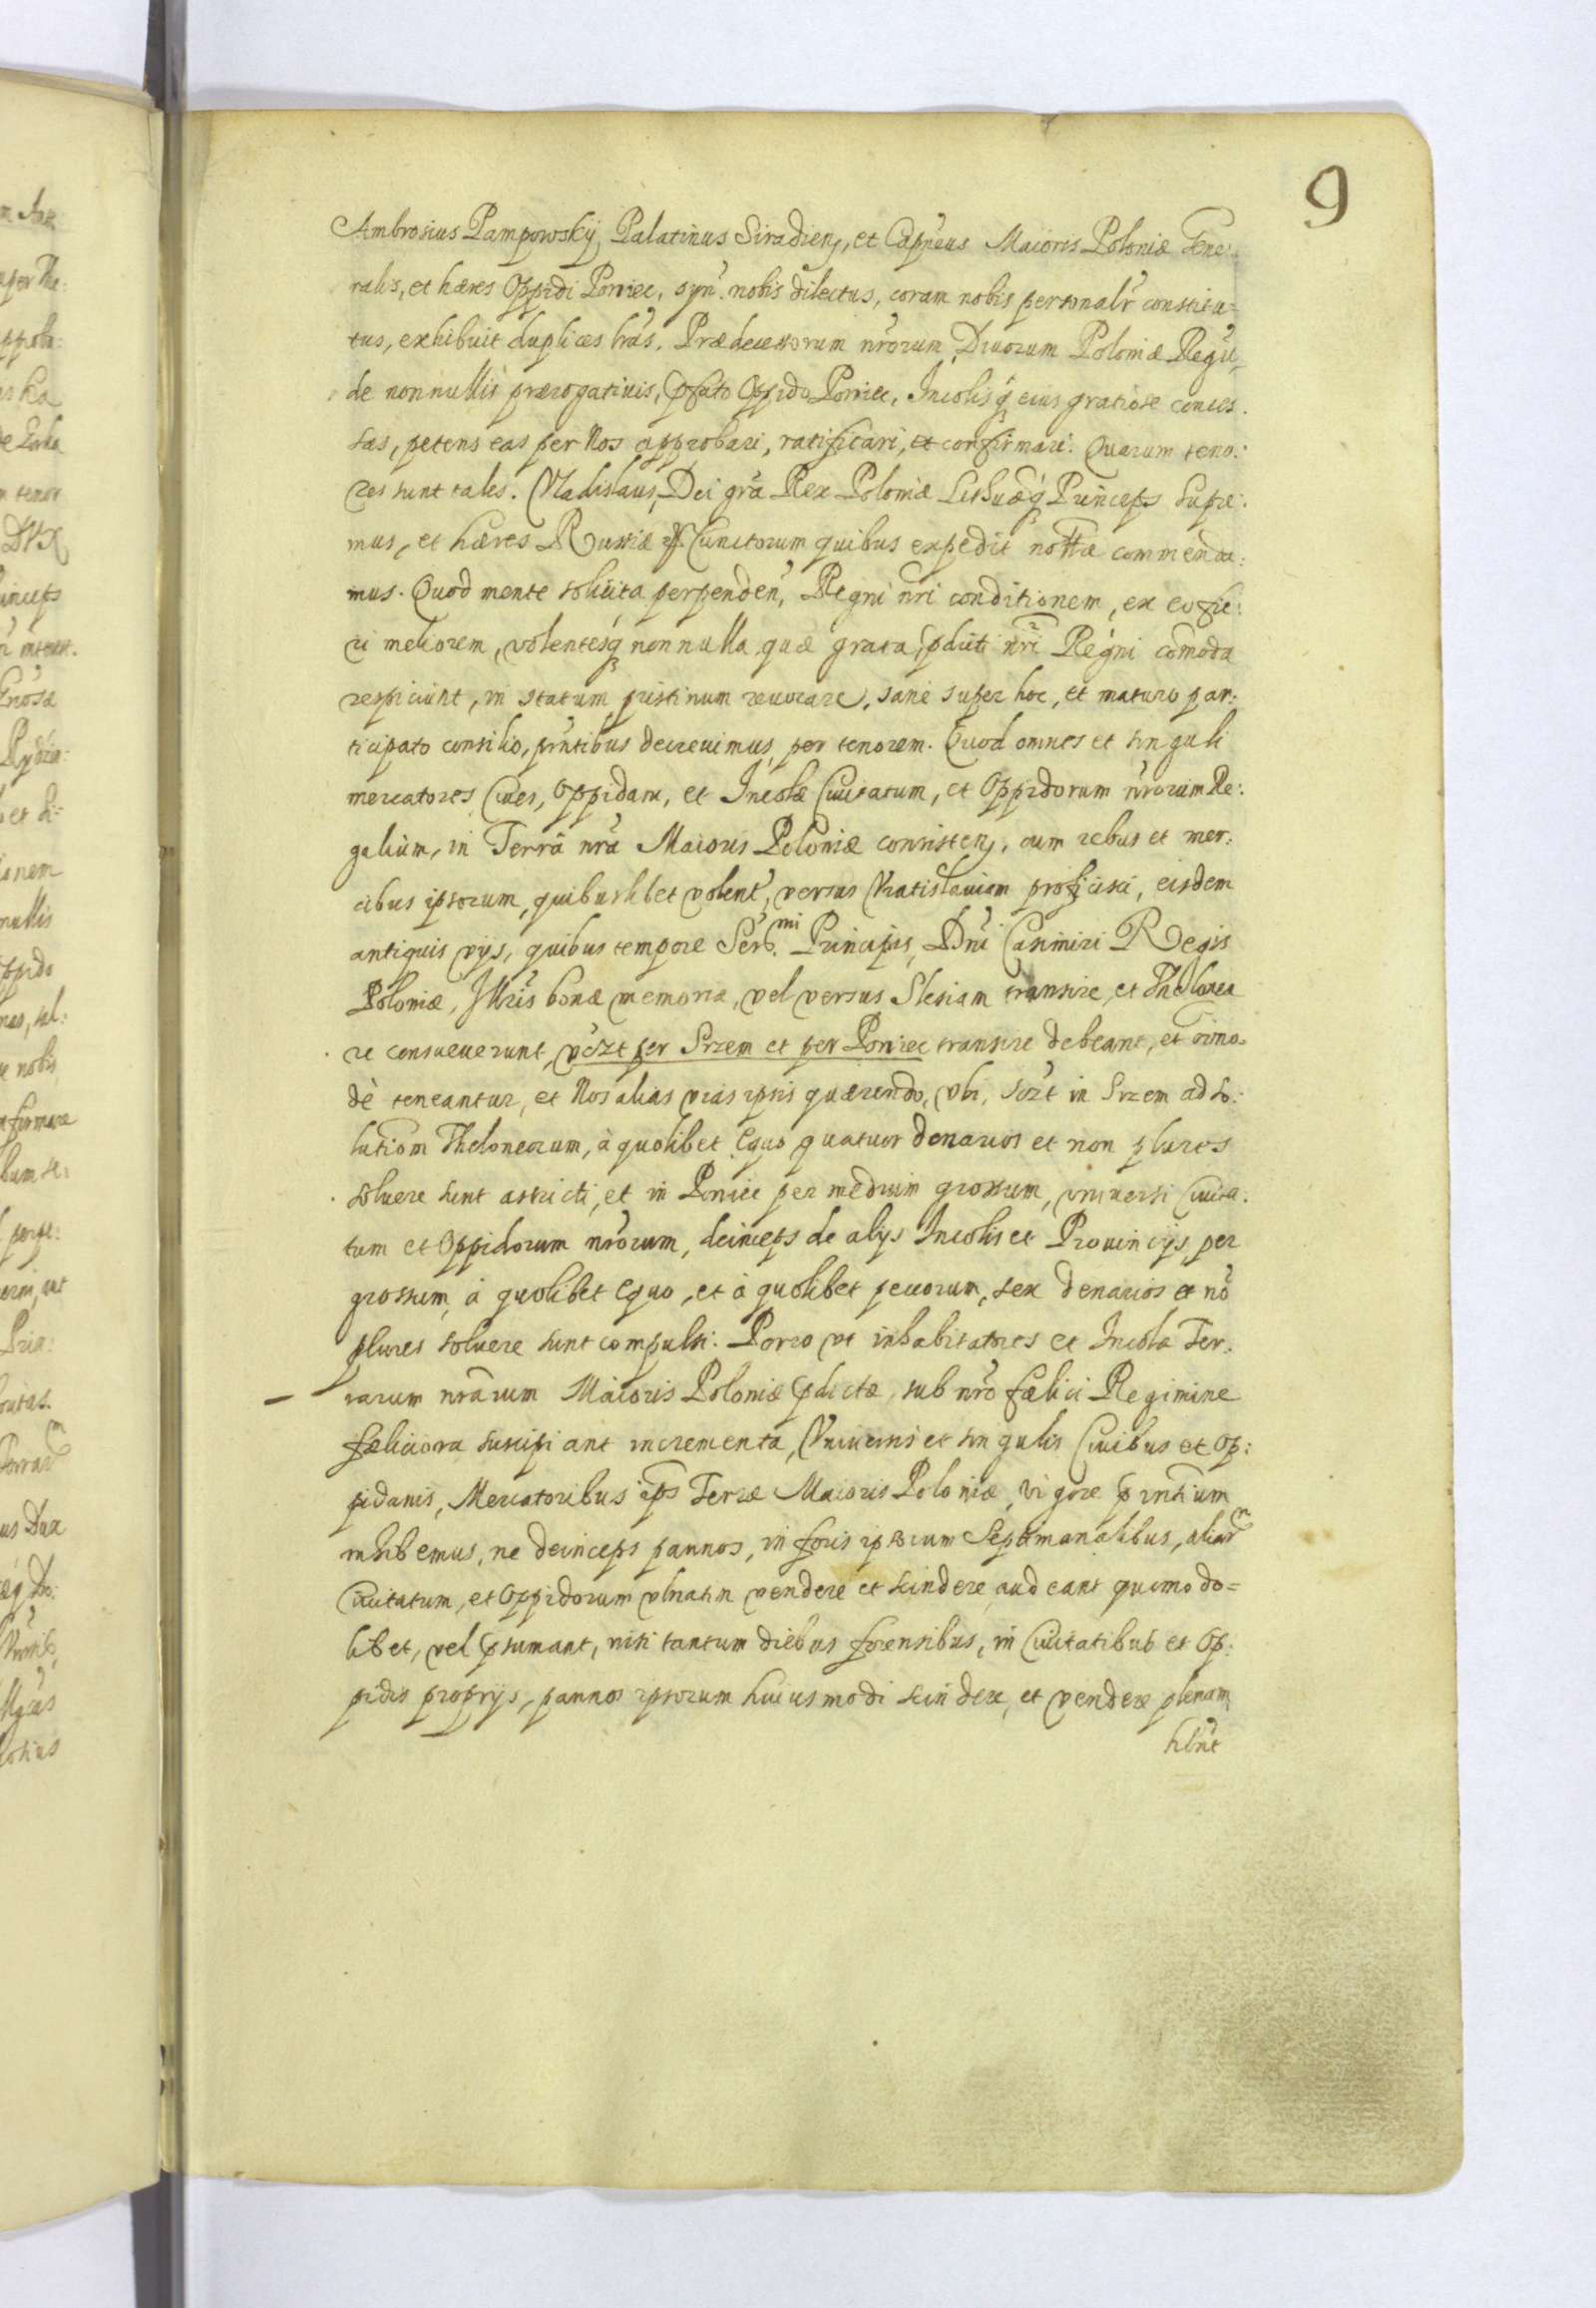 9
Ambrosius Pampowskÿ, Palatinus Siradien, et Capñeus Maioris Poloniæ Gene:
ralis, et hæres Oppidi Poniec, syñ nobis dilectus, coram nobis personalr constitu=
tus, exhibuit duplices lras. Prædecessorum nrorum Diuorum Poloniæ Regū,
de nonnullis prærogatiuis, pfato Oppido Poniec, Incolisq eius gratiose conces.
sas, petens eas per Nos approbari, ratificari, et confirmari. Quarum teno:
res sunt tales. Vladislaus, Dei gra Rex Poloniæ Lithuæq Princeps Supre:
mus, et hæres Russiæ Cunctorum quibus expedit notitiæ commenda:
mus. Quod mente solicita perpenden, Regni nri conditionem, ex eo fie:
ri meliorem, volentesq nonnulla, quæ grata, pdicti nri Regni comoda
respiciunt, in statum pristinum reuocare, sane super hoc, et maturo par:
ticipato consilio, pntibus decreuimus per tenorem. Quod omnes et singuli
mercatores Ciues, Oppidani, et Incolæ Ciuitatum, et Oppidorum nrorum Re:
galium, in Terrâ nrâ Maioris Poloniæ consisten, cum rebus et mer:
cibus ipsorum, quibuslibet volent, versus Vratislauiam proficisci, eisdem
antiquis vijs, quibus tempore Ser. mi Principis, Dñi Casimiri Regis
Poloniæ, Illris bonæ memoriæ, vel versus Slesiam transire, et Thelonea
re consueuerunt, vczt per Srzem et per Poniec transire debeant, et omo.
dè teneantur, et Nos alias vias ipsis quærendo, vbi, sczt in Srzem ad so:
lutiom Theloneorum, à quolibet Equo quatuor denarios et non plures
soluere sunt astricti, et in Poniec per medium grossum, vniuersi Ciuita.
tum et Oppidorum nrorum, deinceps de alijs Incolis et Prouincijs per
grossum, à quolibet Equo, et à quolibet pecorum, sex denarios et nō
plures soluere sunt compulsi. Porro vt inhabitatores et Incolæ Ter.
rarum nrarum Maioris Poloniæ pdictæ, sub nro fælici Regimine
fæliciora suscipiant incrementa, Vniuersis et singulis Ciuibus et Op:
pidanis, Mercatoribus ips Terræ Maioris Poloniæ, vigore pntium
inhibemus, ne deinceps pannos, in foris ipsorum Septimanalibus, aliar m
Ciuitatum, et Oppidorum vlnatin vendere et scindere audeant quomodo=
libet, vel psumant, nisi tantum diebus forensibus, in Ciuitatibus et Op:
pidis proprijs, pannos ipsorum huiusmodi scindere, et vendere plenam
hbnt